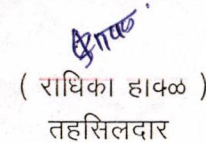 ( राधिका हावळ )
तहसिलदार